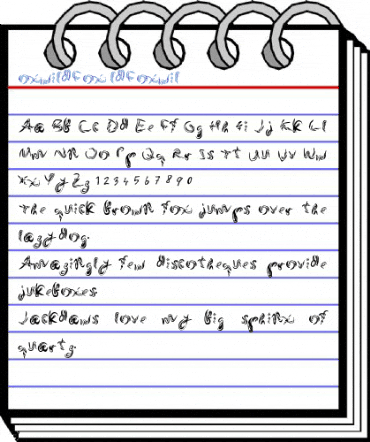 Aa Bb Cc Dd Ee Ff Gg Hh Ii Jj Kk Ll
Mm Nn Oo Pp Qq Rr Ss Tt Uu Vv Ww
Xx Yy Zz 1 2 3 4 5 6 7 8 9 0
The quick brown fox jumps over the
lazy dog.
Amazingly few discotheques provide
jukeboxes
Jackdaws love my big sphinx of
quartz.